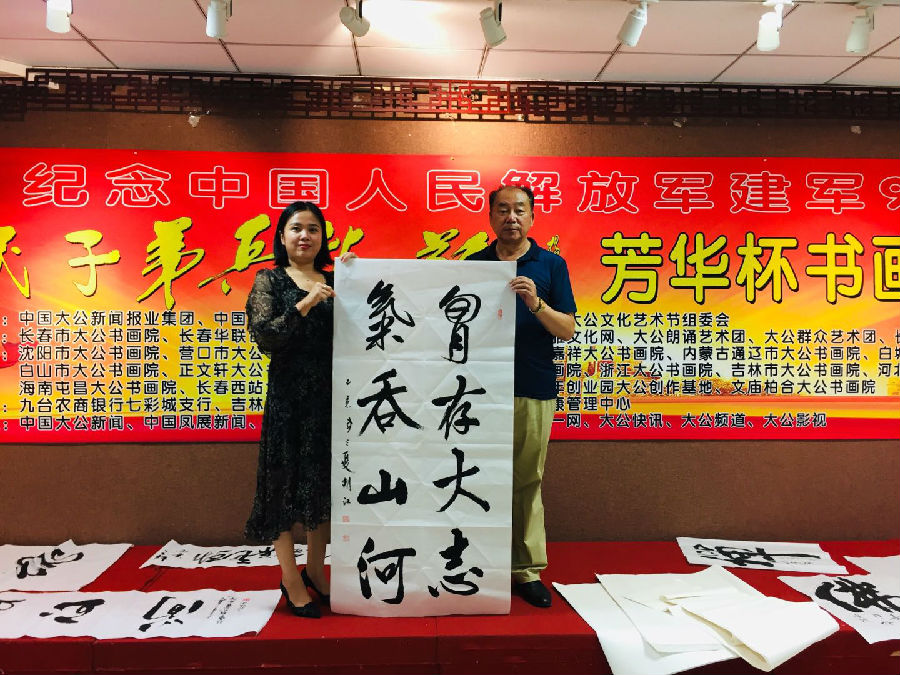 纪念中国人民解放军建军
子弟兵
芳华杯书画
：中国大公新闻报业集团、中国
大公文化艺术节组委会
：长春市大公书画院、长春华联
文化网、大公朗诵艺术团、大公群众艺术团、
：沈阳市大公书画院、营口市大公
嘉祥大公书画院、内蒙古通辽市大公书画院、白城
白山市大公书画院、正文轩大公
院、浙江大公书画院、吉林大公书画院、河北
海南屯昌大公书画院、长春西站
创业园大公创作基地、文庙柏合大公书画院
：九台农商银行七彩城支行、吉林
康管理中心
：中国大公新闻、中国凤展新闻、
一网、大公快讯、大公频道、大公影视
胃存大志
氣吞山河